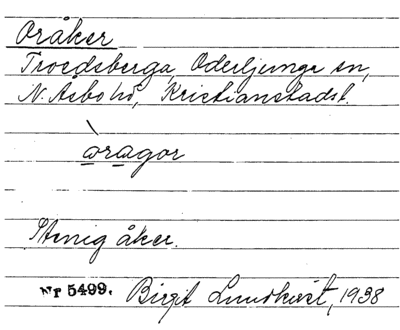 Oråker
Troedsberga, Oderljunga sn,
N. Åsbo hd, Kristianstads l.
òragor
Stenig åker.
Nr 5499. Birgit Lundkvist, 1938